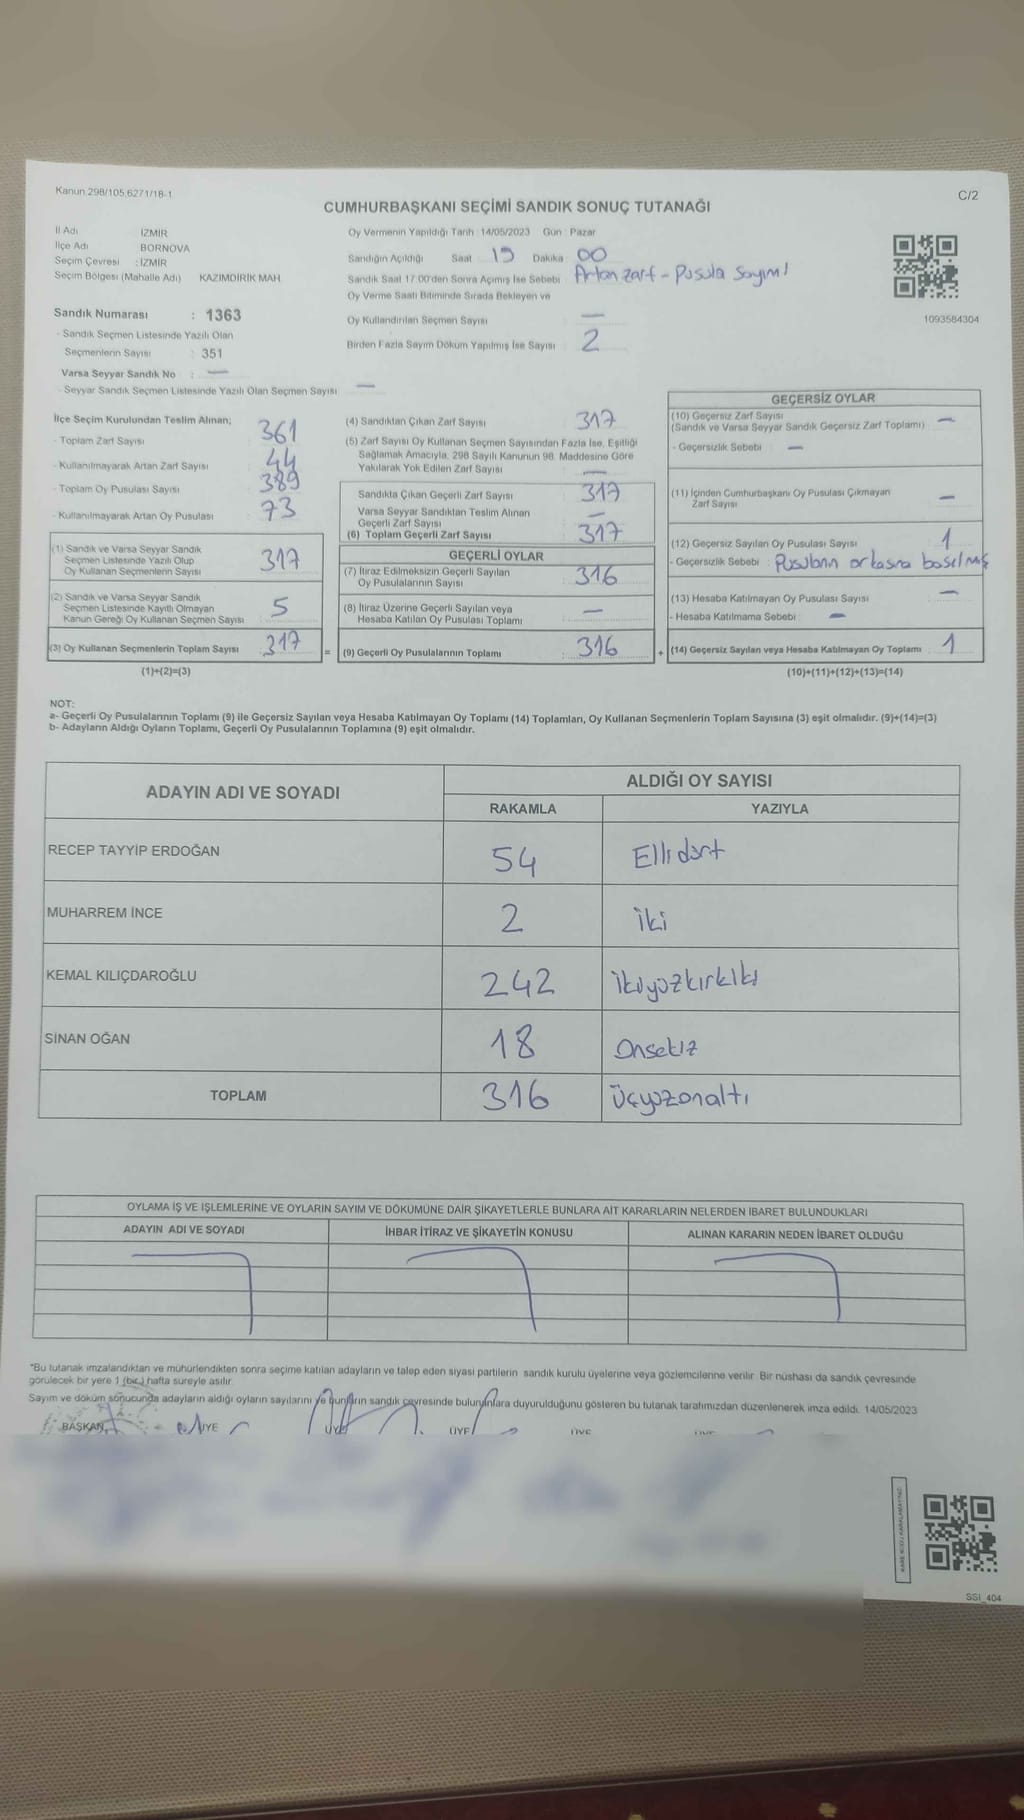 Kanun.298/105,6271/18-1
C/2
CUMHURBAŞKANI SEÇİMİ SANDIK SONUÇ TUTANAĞI
İl Adı İZMİR
İlçe Adı BORNOVA
Seçim Çevresi : İZMİR
Seçim Bölgesi (Mahalle Adı) KAZIMDİRİK MAH.
Sandık Numarası : 1363
- Sandık Seçmen Listesinde Yazılı Olan
Seçmenlerin Sayısı : 351
Varsa Seyyar Sandık No : —
- Seyyar Sandık Seçmen Listesinde Yazılı Olan Seçmen Sayısı —
Oy Vermenin Yapıldığı Tarih : 14/05/2023 Gün : Pazar
Sandığın Açıldığı Saat Dakika 00
Sandık Saat 17:00'den Sonra Açılmış İse Sebebi Artan zarf - Pusula Sayımı
Oy Verme Saati Bitiminde Sırada Bekleyen ve
Oy Kullandırılan Seçmen Sayısı —
Birden Fazla Sayım Döküm Yapılmış İse Sayısı 2
1093584304
İlçe Seçim Kurulundan Teslim Alınan;
- Toplam Zarf Sayısı 361
- Kullanılmayarak Artan Zarf Sayısı 44
- Toplam Oy Pusulası Sayısı 389
- Kullanılmayarak Artan Oy Pusulası 73
(1) Sandık ve Varsa Seyyar Sandık
Seçmen Listesinde Yazılı Olup
Oy Kullanan Seçmenlerin Sayısı 317
(2) Sandık ve Varsa Seyyar Sandık
Seçmen Listesinde Kayıtlı Olmayan
Kanun Gereği Oy Kullanan Seçmen Sayısı 5
(3) Oy Kullanan Seçmenlerin Toplam Sayısı : 317
(1)+(2)=(3)
(4) Sandıktan Çıkan Zarf Sayısı 317
(5) Zarf Sayısı Oy Kullanan Seçmen Sayısından Fazla İse, Eşitliği
Sağlamak Amacıyla, 298 Sayılı Kanunun 98. Maddesine Göre
Yakılarak Yok Edilen Zarf Sayısı —
Sandıkta Çıkan Geçerli Zarf Sayısı 317
Varsa Seyyar Sandıktan Teslim Alınan
Geçerli Zarf Sayısı —
(6) Toplam Geçerli Zarf Sayısı 317
GEÇERLİ OYLAR
(7) İtiraz Edilmeksizin Geçerli Sayılan
Oy Pusulalarının Sayısı 316
(8) İtiraz Üzerine Geçerli Sayılan veya
Hesaba Katılan Oy Pusulası Toplamı —
= (9) Geçerli Oy Pusulalarının Toplamı : 316
GEÇERSİZ OYLAR
(10) Geçersiz Zarf Sayısı
(Sandık ve Varsa Seyyar Sandık Geçersiz Zarf Toplamı) —
- Geçersizlik Sebebi : —
(11) İçinden Cumhurbaşkanı Oy Pusulası Çıkmayan
Zarf Sayısı —
(12) Geçersiz Sayılan Oy Pusulası Sayısı 1
- Geçersizlik Sebebi : Pusulanın arkasına basılmış
(13) Hesaba Katılmayan Oy Pusulası Sayısı —
- Hesaba Katılmama Sebebi : —
+ (14) Geçersiz Sayılan veya Hesaba Katılmayan Oy Toplamı : 1
(10)+(11)+(12)+(13)=(14)
NOT:
a- Geçerli Oy Pusulalarının Toplamı (9) ile Geçersiz Sayılan veya Hesaba Katılmayan Oy Toplamı (14) Toplamları, Oy Kullanan Seçmenlerin Toplam Sayısına (3) eşit olmalıdır. (9)+(14)=(3)
b- Adayların Aldığı Oyların Toplamı, Geçerli Oy Pusulalarının Toplamına (9) eşit olmalıdır.
ADAYIN ADI VE SOYADI
ALDIĞI OY SAYISI
RAKAMLA YAZIYLA
RECEP TAYYİP ERDOĞAN 54 Ellidört
MUHARREM İNCE 2 iki
KEMAL KILIÇDAROĞLU 242 İkiyüzkırkiki
SİNAN OĞAN 18 Onsekiz
TOPLAM 316 Üçyüzonaltı
OYLAMA İŞ VE İŞLEMLERİNE VE OYLARIN SAYIM VE DÖKÜMÜNE DAİR ŞİKAYETLERLE BUNLARA AİT KARARLARIN NELERDEN İBARET BULUNDUKLARI
ADAYIN ADI VE SOYADI İHBAR İTİRAZ VE ŞİKAYETİN KONUSU ALINAN KARARIN NEDEN İBARET OLDUĞU
*Bu tutanak imzalandıktan ve mühürlendikten sonra seçime katılan adayların ve talep eden siyasi partilerin sandık kurulu üyelerine veya gözlemcilerine verilir. Bir nüshası da sandık çevresinde
görülecek bir yere 1 (bir) hafta süreyle asılır.
Sayım ve döküm sonucunda adayların aldığı oyların sayılarını ve bunların sandık çevresinde bulunanlara duyurulduğunu gösteren bu tutanak tarafımızdan düzenlenerek imza edildi. 14/05/2023
BAŞKAN ÜYE ÜYE ÜYE ÜYE
SSI_404